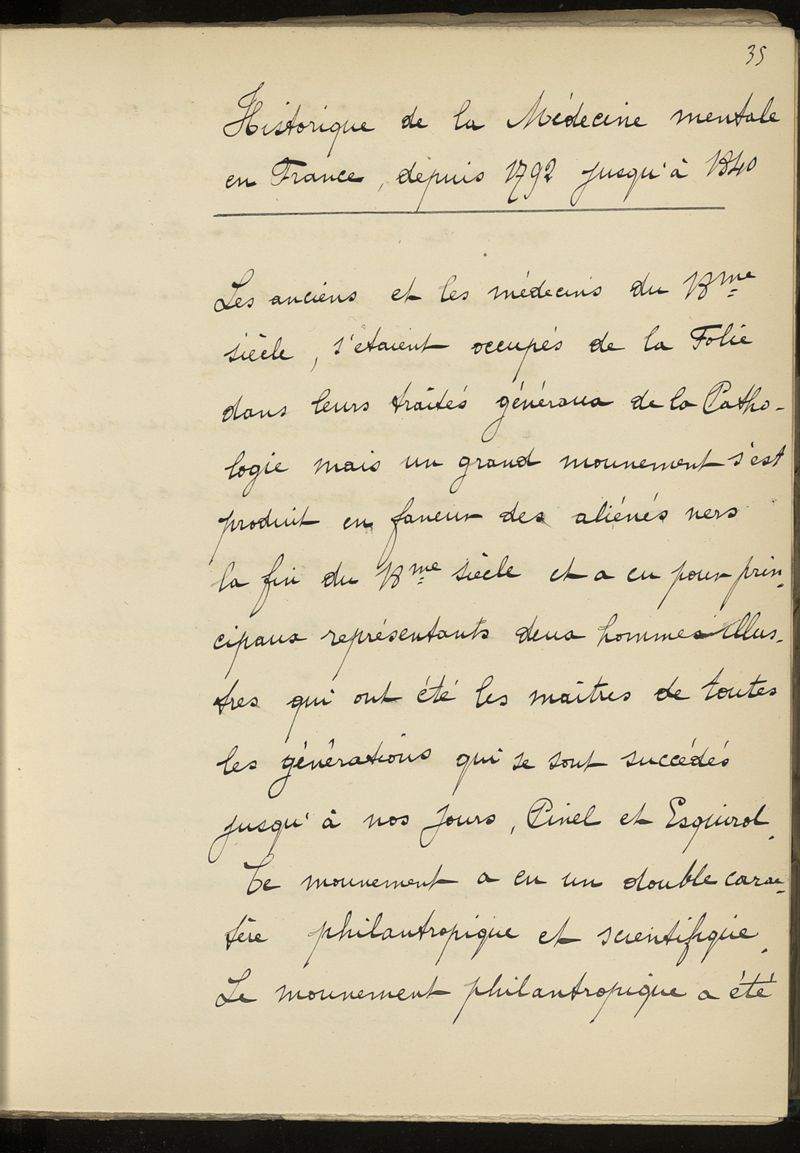 35
Historique de la Médecine mentale
en France, depuis 1792 jusqu'à 1840
Les anciens et les médecins du 18me
siècle, s'étaient occupés de la Folie
dans leurs traités généraux de la Patho-
logie mais un grand mouvement s'est
produit en faveur des aliénés vers
la fin du 18me siècle et a eu pour prin-
cipaux représentants deux hommes illus-
tres qui ont été les maîtres de toutes
les générations qui se sont succédés
jusqu'à nos jours, Pinel et Esquirol.
Ce mouvement a eu un double carac-
tère philantropique et scientifique.
Le mouvement philantropique a été